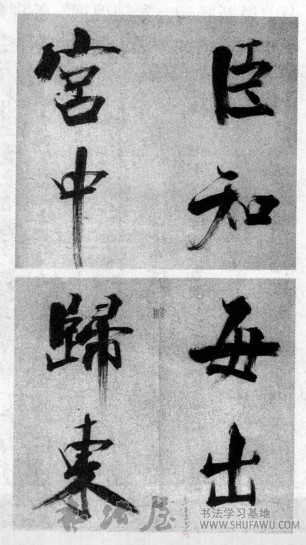 臣知
宮中
每出
歸東
书法屋
书法学习基地
WWW.SHUFAWU.COM